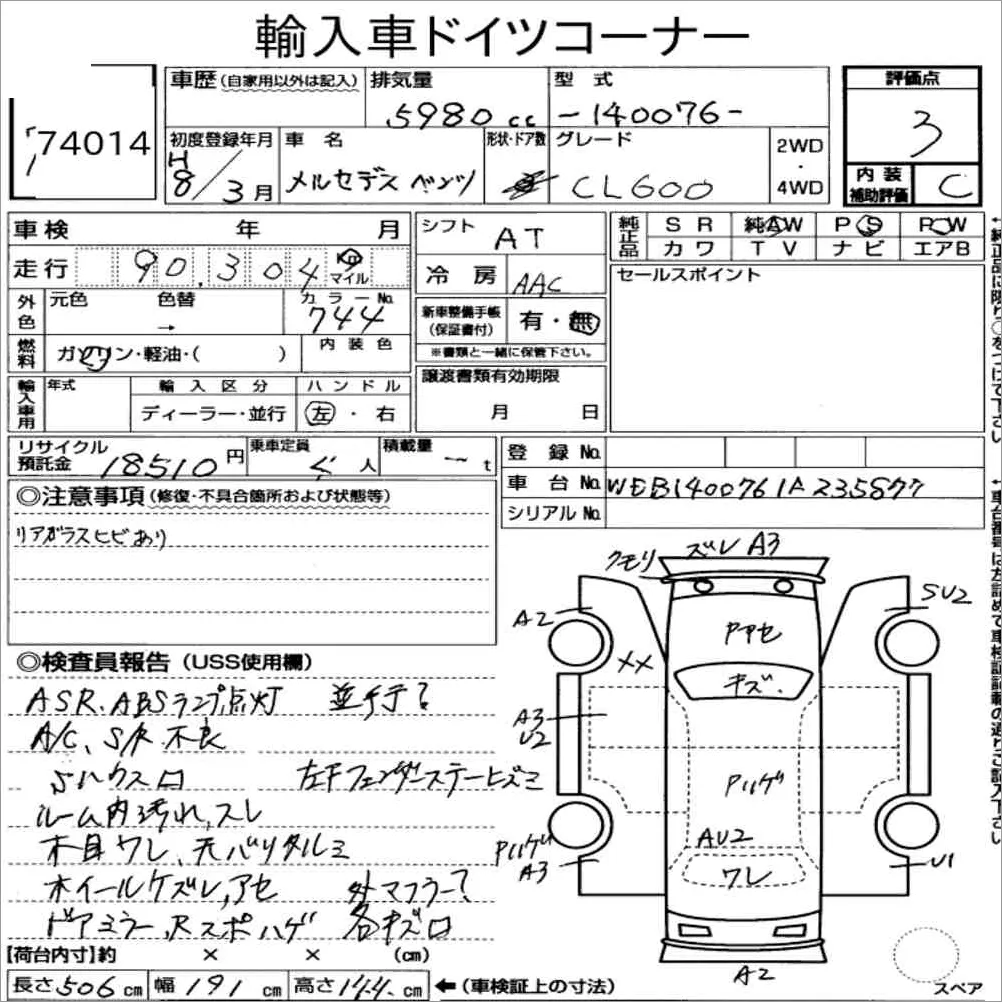 輸入車ドイツコーナー
74014
車歴(自家用以外は記入) 排気量 5980cc 型式 -140076-
評価点 3
初度登録年月 H8/3月 車名 メルセデスベンツ 形状・ドア数 グレード CL600 2WD・4WD
内装補助評価 C
車検 年 月
シフト AT
純正品 SR 純AW PS PW
カワ TV ナビ エアB
走行 90,304 Km マイル
冷房 AAC
セールスポイント
外色 元色 色替 → カラーNo. 744
新車整備手帳(保証書付) 有・無
※書類と一緒に保管下さい。
燃料 ガソリン・軽油・( ) 内装色
輸入車用 年式 輸入区分 ディーラー・並行 ハンドル 左・右
譲渡書類有効期限 月 日
リサイクル預託金 18510円 乗車定員 人 積載量 ー t
登録No.
車台No. WEB1400761A235877
シリアルNo.
◎注意事項(修復・不具合箇所および状態等)
リアガラスヒビあり
◎検査員報告(USS使用欄)
ASR、ABSランプ点灯 並行?
A/C、S/R不良
ルーム内汚れ、スレ
木目ワレ、天バリタルミ
ホイールケズレ、アセ 外マフラー?
ドアミラー、Rスポハゲ 各キズ
クモリ ズレ A3
A2
SU2
Pアセ
XX
キズ
A3
U2
Pハゲ
AU2
ワレ
Pハゲ
A3
U1
A2
スペア
【荷台内寸】約 × × (cm)
長さ506cm 幅191cm 高さ144cm ←(車検証上の寸法)